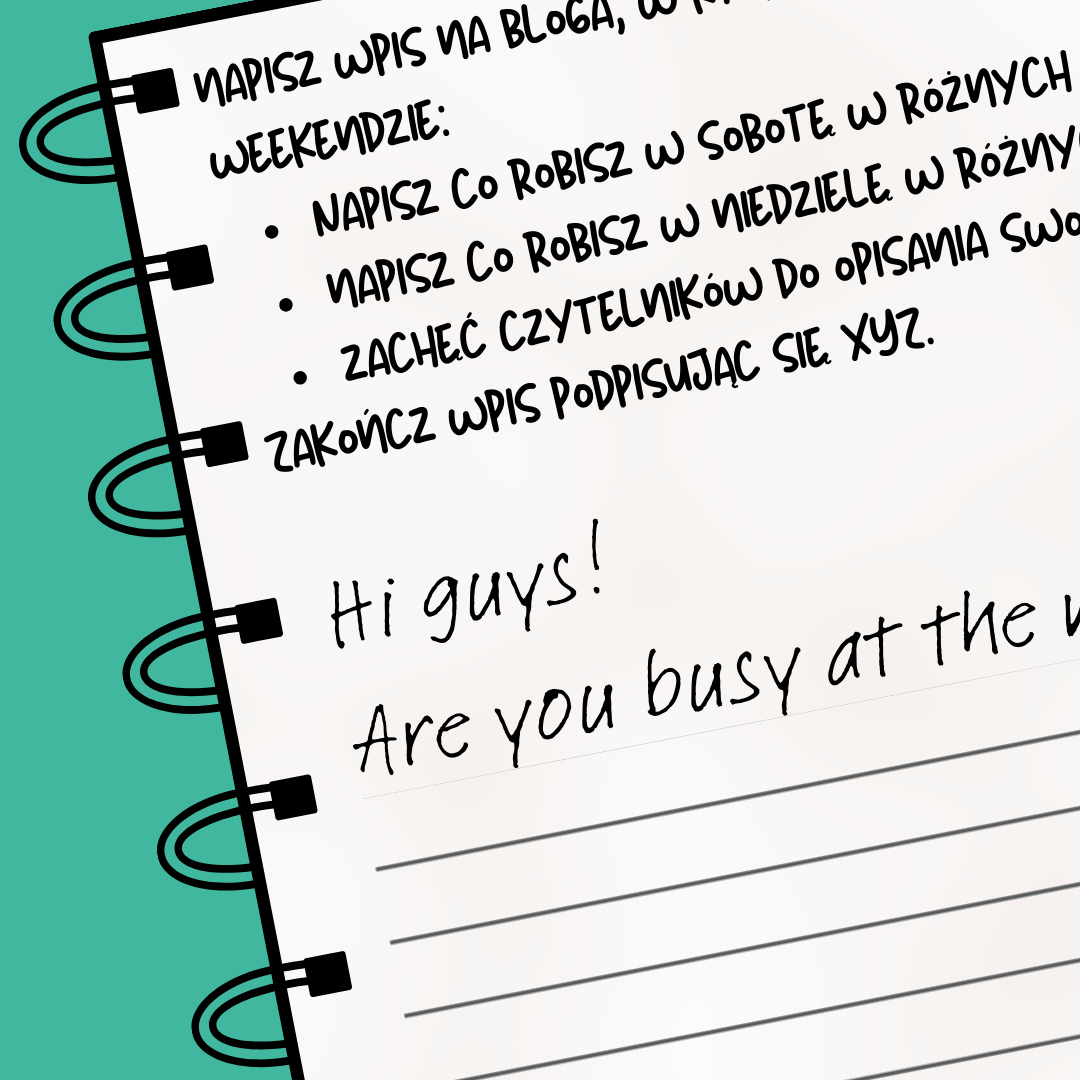 NAPISZ WPIS NA BLOGA, W
WEEKENDZIE:
• NAPISZ CO ROBISZ W SOBOTĘ W RÓŻNYCH
• NAPISZ CO ROBISZ W NIEDZIELĘ W
• ZACHĘĆ CZYTELNIKÓW DO OPISANIA
ZAKOŃCZ WPIS PODPISUJĄC SIĘ XYZ.
Hi guys!
Are you busy at the